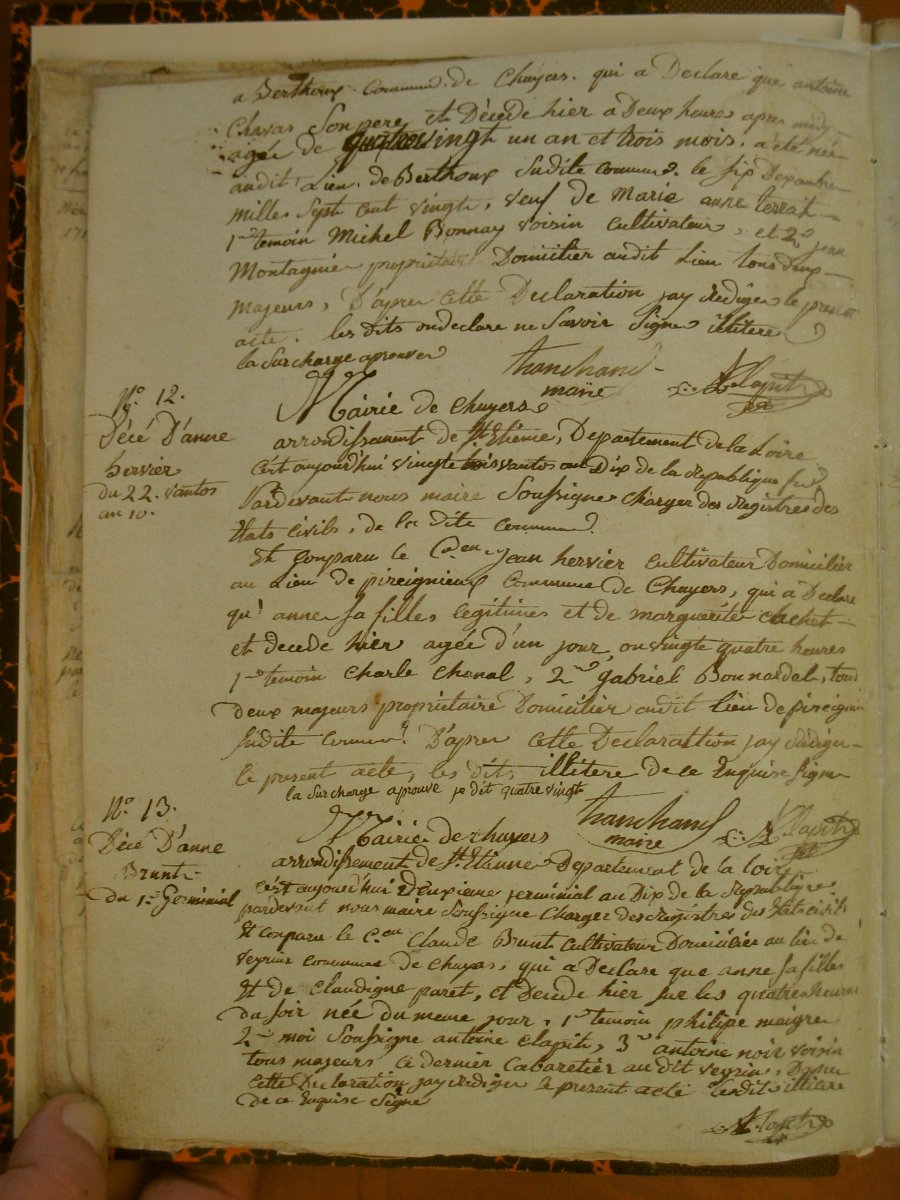 a Berthoux commune de Chuyers. qui a Declare que antoine
Chavas Son pere et Décede hier a Deux heures apres midy
agée de quatrevingt un an et trois mois. a été née
audit Lieu de Berthoux Sudite commune. le six Dexambre
mille Sept cent vingt, veuf de Marie anne terrat
1er temoin Michel Bonnay voisin Cultivateur, et 2e jean
Montagnier proprietaire Domicilier audit Lieu tous deux
majeurs, D'apres cette Declaration jay Rediger le present
acte. les dits ondeclare ne Savoir Signer illitere
la Surcharge aprouver
thanchand
maire
A Clapit
No. 12.
Décé D'anne
hervier
du 22. vantos
an 10.
Mairie de Chuyers
arrondissement de St Etienne, Departement de la Loire
C'est aujourd'hui vingte trois vantos an Dix de la Republique
Pardevant nous maire Soussigne Charger des Registres des
Etats Civils, de la dite commune
Et Conparu le Cen jean hervier cultivateur Domicilier
au Lieu de pireignieux Commune de Chuyers, qui a Declare
qu' anne Sa filles legitimes et de marguerite clachet
et decede hier agée d'un jour, ou vingte quatre heures
1er temoin Charle Chanal, 2e gabriel Bonnardel, tous
deux majeurs proprietaire Domicilier audit lieu de pireignieux
Sudite commune D'apres cette Declarattion jay Rediger
le present acte, les dits illitere de ce Enquise Signer
la Surcharge aprouve je dit quatre vingt
thanchand
maire
A Clapit
No. 13.
Décé D'anne
Brunt
Du 1er Germinial
Mairie de chuyers
arrondissement de St. Etienne Departement de la loire
C'est aujourd'hui Deuxieme jerminial an Dix de la Republique
pardevant nous maire Soussigne Charger des Registres des Etats civils
Et Conparu le Cen Claude Brunt Cultivateur Domicilier au lieu de
veyrieux commune de chuyers, qui a Declare que anne sa filles
Et de Claudigne paret, et Decede hier sur les quatres heures
Du soir née du meme jour, 1er temoin philipe maigre
2e moi Soussigne antoine Clapit, 3e antoine noir voisin
tous majeurs ce dernier Cabaretier au dit veyrieux, Dapres
Cette Declaration jay Rediger le present acte Lesdit illitere
De ce Enquise Signe
A Clapit